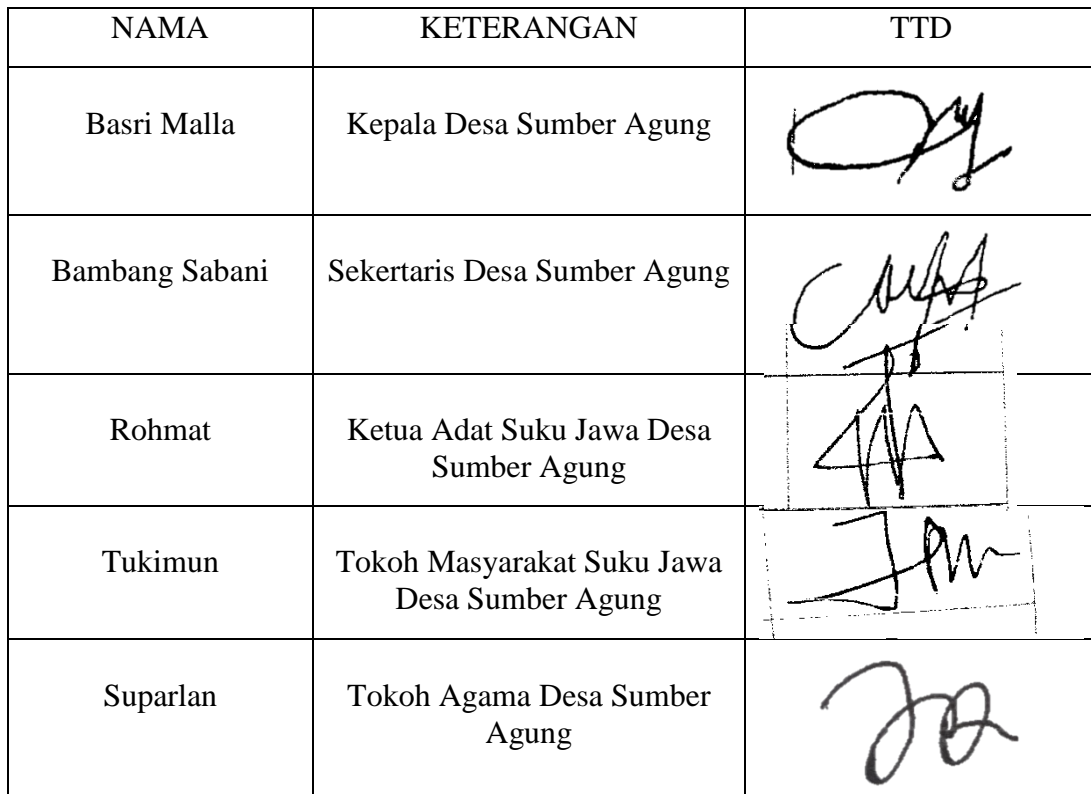 NAMA KETERANGAN TTD
Basri Malla Kepala Desa Sumber Agung
Bambang Sabani Sekertaris Desa Sumber Agung
Rohmat Ketua Adat Suku Jawa Desa
Sumber Agung
Tukimun Tokoh Masyarakat Suku Jawa
Desa Sumber Agung
Suparlan Tokoh Agama Desa Sumber
Agung